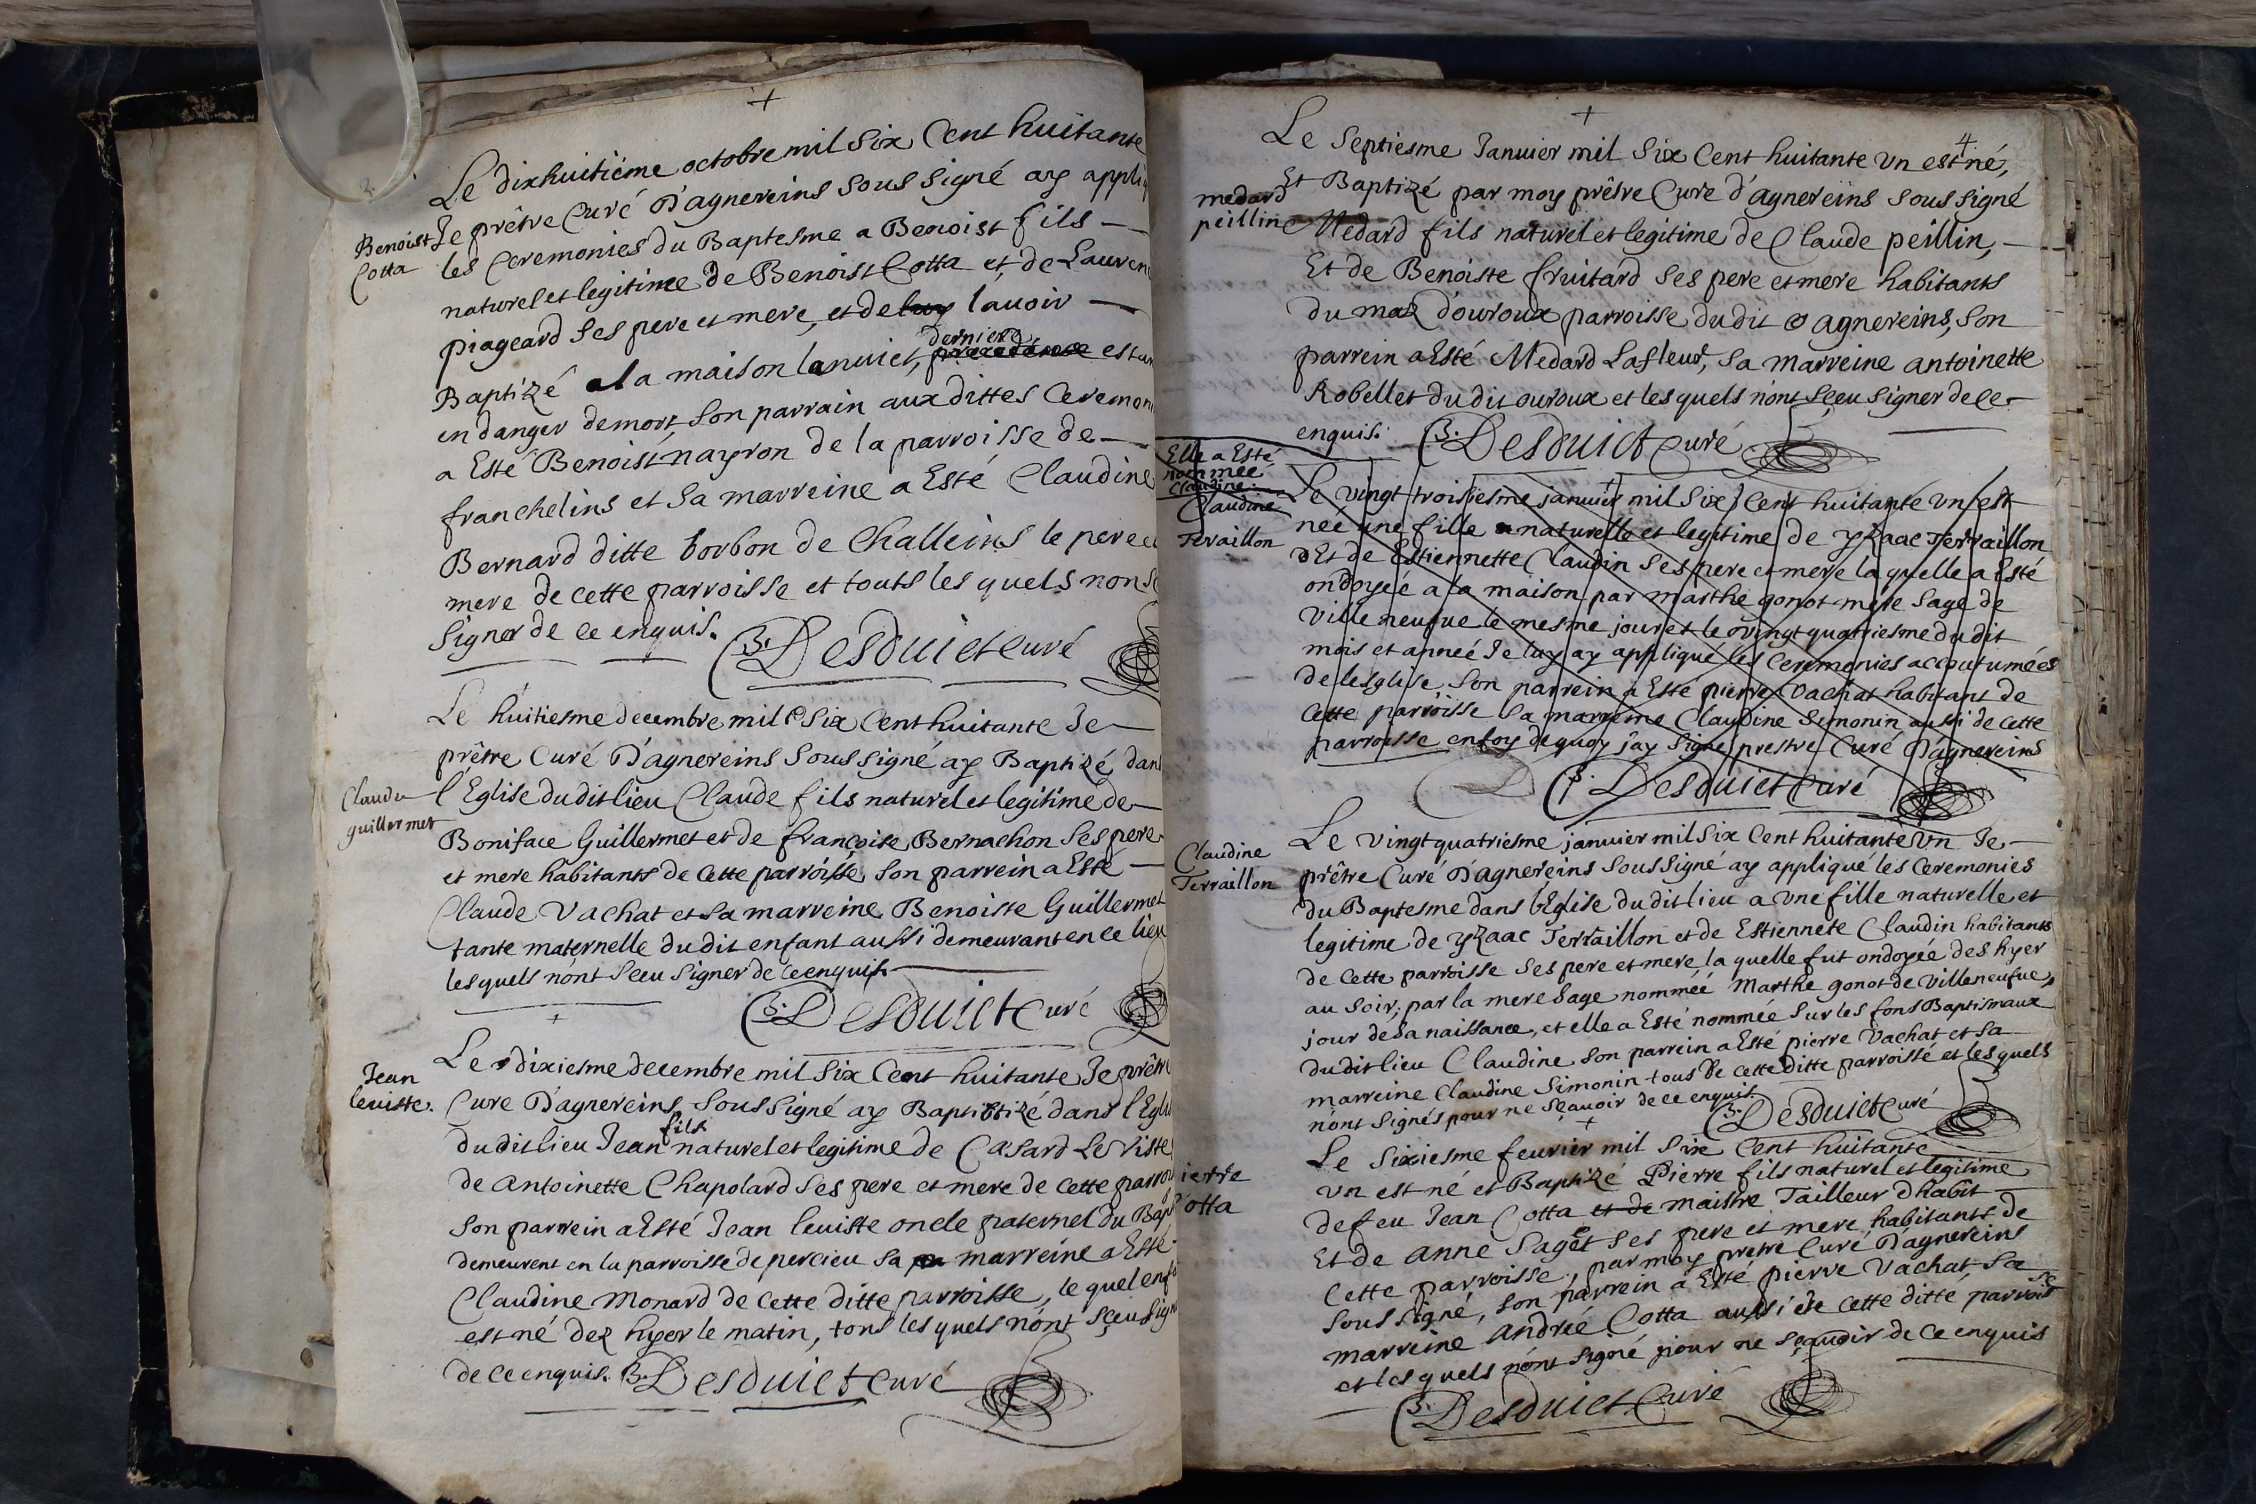 Le dixhuitiéme octobre mil six Cent huitante
Je prêtre Curé D'agnereins soussigné ay appliq
Benoist
Cotta
les Ceremonies du Baptesme a Benoist fils
naturel et legitime de Benoist Cotta et de Lauren
piageard ses pere et mere, et de luy l'auoir
derniere
Baptizé a la maison lanuiet, precedente estan
en danger demort, son parrain aux dittes Ceremoni
a Esté Benoist nayron de la parroisse de
franchelins et sa marreine a Esté Claudine
Bernard ditte borbon de Challeins le pere et
mere de cette parroisse et touts les quels non sc
signer de ce enquis. B. Desduict Curé
Le huitiesme decembre mil six Cent huitante Je
prêtre Curé D'agnereins soussigné ay Baptizé dans
Claude
guillermet
l'Eglise du dit lieu Claude fils naturel et legitime de
Boniface Guillermet et de françoise Bernachon ses pere
et mere habitants de cette parroisse, son parrein a Esté
Claude Vachat et sa marreine Benoiste Guillermet
tante maternelle du dit enfant aussi demeurant en ce lieu
les quels n'ont sceu signer de ce enquis.
B. Desduict Curé
Jean
leuiste.
Le dixiesme decembre mil six Cent huitante Je prêtre
Cure D'agnereins soussigné ay Baptizé dans l'Eglis
fils
du dit lieu Jean naturel et legitime de Casard Le Viste
de antoinette Chapolard ses pere et mere de cette parroi
son parrein a Esté Jean leuiste oncle paternel du Bap
demeurent en la parroisse de percieu sa marreine a Esté
Claudine Monard de cette ditte parroisse, le quel enfa
est né dez hyer le matin, tous les quels n'ont sceu sign
de ce enquis. B. Desduict Curé
4
Le septiesme Januier mil six Cent huitante Vn est né,
Et Baptizé par moy prêtre Cure d'agnereins soussigné
medard
peillin
Medard fils naturel et legitime de Claude peillin,
Et de Benoiste fruitard ses pere et mere habitants
du maz d'ouroux parroisse du dit agnereins, son
parrein a Esté Medard Lafleur, sa marreine antoinette
Robellet du dit ouroux et les quels n'ont sceu signer de ce
enquis. B. Desduict Curé
Elle a Esté
nommeé
Claudine.
Claudine
Teraillon
Le vingt troisiesme januier mil six Cent huitante Vn est
neé une fille naturelle et legitime de yzaac Terraillon
Et de Estiennette Claudin ses pere et mere la quelle a Esté
ondoyeé a la maison par marthe gonot mere sage de
Villeneufue le mesme jour et le vingt quatriesme du dit
mois et anneé Je luy ay appliqué les Ceremonies accoutumées
de lesglise, son parrein a Esté pierre Vachat habitant de
cette parroisse sa marreine Claudine Simonin aussi de cette
parroisse en foy de quoy j'ay signé prestre Curé D'agnereins
B. Desduict Curé
Claudine
Terraillon
Le vingt quatriesme januier mil six Cent huitante Vn Je
prêtre Curé D'agnereins soussigné ay appliqué les Ceremonies
du Baptesme dans l'Eglise du dit lieu a vne fille naturelle et
legitime de yzaac Terraillon et de Estiennete Claudin habitants
de cette parroisse ses pere et mere, la quelle fut ondoyée des hyer
au soir, par la mere sage nommeé Marthe gonot de Villeneufue,
jour de sa naissance, et elle a Esté nommeé sur les fons Baptismaux
du dit lieu Claudine son parrein a Esté pierre Vachat et sa
marreine Claudine Simonin tous de cette ditte parroisse et les quels
n'ont signés pour ne sçauoir de ce enquis.
B. Desduict Curé
Le sixiesme feurier mil six Cent huitante
Vn est né et Baptizé Pierre fils naturel et legitime
ierre
otta
de feu Jean Cotta et de maistre Tailleur d'habit
Et de anne Saget ses pere et mere habitants de
cette parroisse, par moy prêtre Curé D'agnereins
soussigné, son parrein a Esté pierre Vachat sa
marreine andreé Cotta aussi de cette ditte parroisse
et les quels n'ont signé pour ne sçauoir de ce enquis
B. Desduict Curé